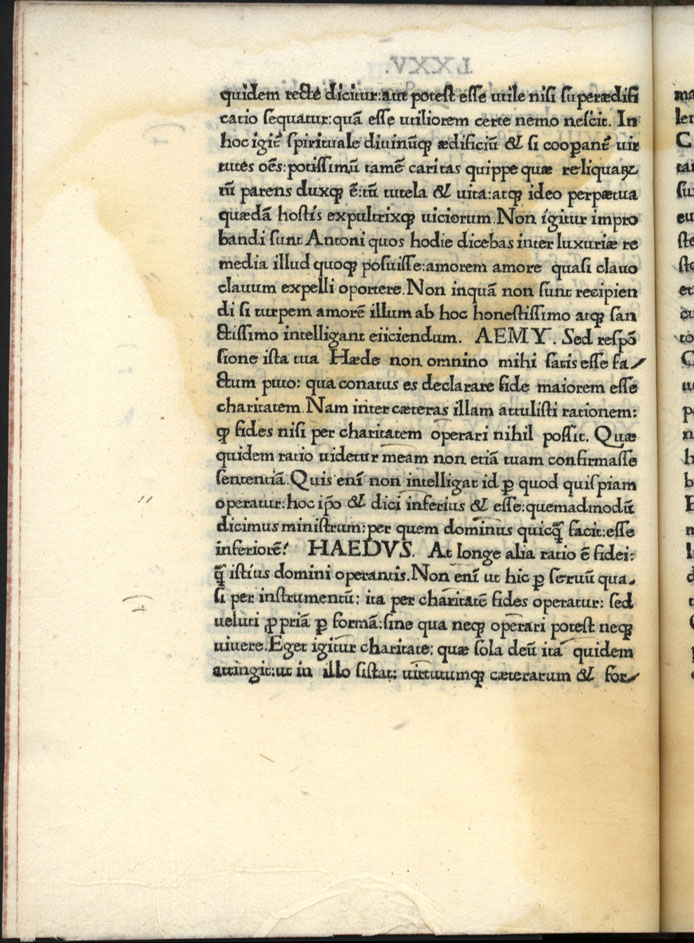 quidem recte dicitur:aut potest esse utile nisi superædifi
catio sequatur:quã esse utiliorem certe nemo nescit. In
hoc igit̃ spirituale diuinũq; ædificiũ & si coopant̃ uir
tutes oẽs:potissimũ tamẽ caritas quippe quæ reliquaꝝ
tũ parens duxq; ẽ:tũ tutela & uita:atq; ideo perpætua
quædã hostis expultrixq; uiciorum. Non igitur impro
bandi sunt Antoni quos hodie dicebas inter luxuriæ re
media illud quoq; posuisse:amorem amore quasi clauo
clauum expelli oportere. Non inquã non sunt recipien
di si turpem amorẽ illum ab hoc honestissimo atq; san
ctissimo intelligant eiiciendum. AEMY. Sed respõ
sione ista tua Hæde non omnino mihi satis esse fa/
ctum puto: qua conatus es declarare fide maiorem esse
charitatem. Nam inter cæteras illam attulisti rationem:
ꝙ fides nisi per charitatem operari nihil possit. Quæ
quidem ratio uidetur meam non etiã tuam confirmasse
sententiã. Quis enĩ non intelligat id ꝑ quod quispiam
operatur:hoc ip̃o & dici inferius & esse:quemadmodũ
dicimus ministrum:per quem dominus quicꝙ̃ facit:esse
inferiorẽ? HAEDVS. At longe alia ratio ẽ fidei:
ꝙ̃ istius domini operantis. Non enĩ ut hic ꝑ seruũ qua,
si per instrumentũ: ita per charitatẽ fides operatur: sed
ueluti ꝓpriã ꝑ formã:sine qua neq; operari potest neq;
uiuere. Eget igitur charitate: quæ sola deũ ita quidem
attingit:ut in illo sistat: uirtutumq; cæterarum & for/